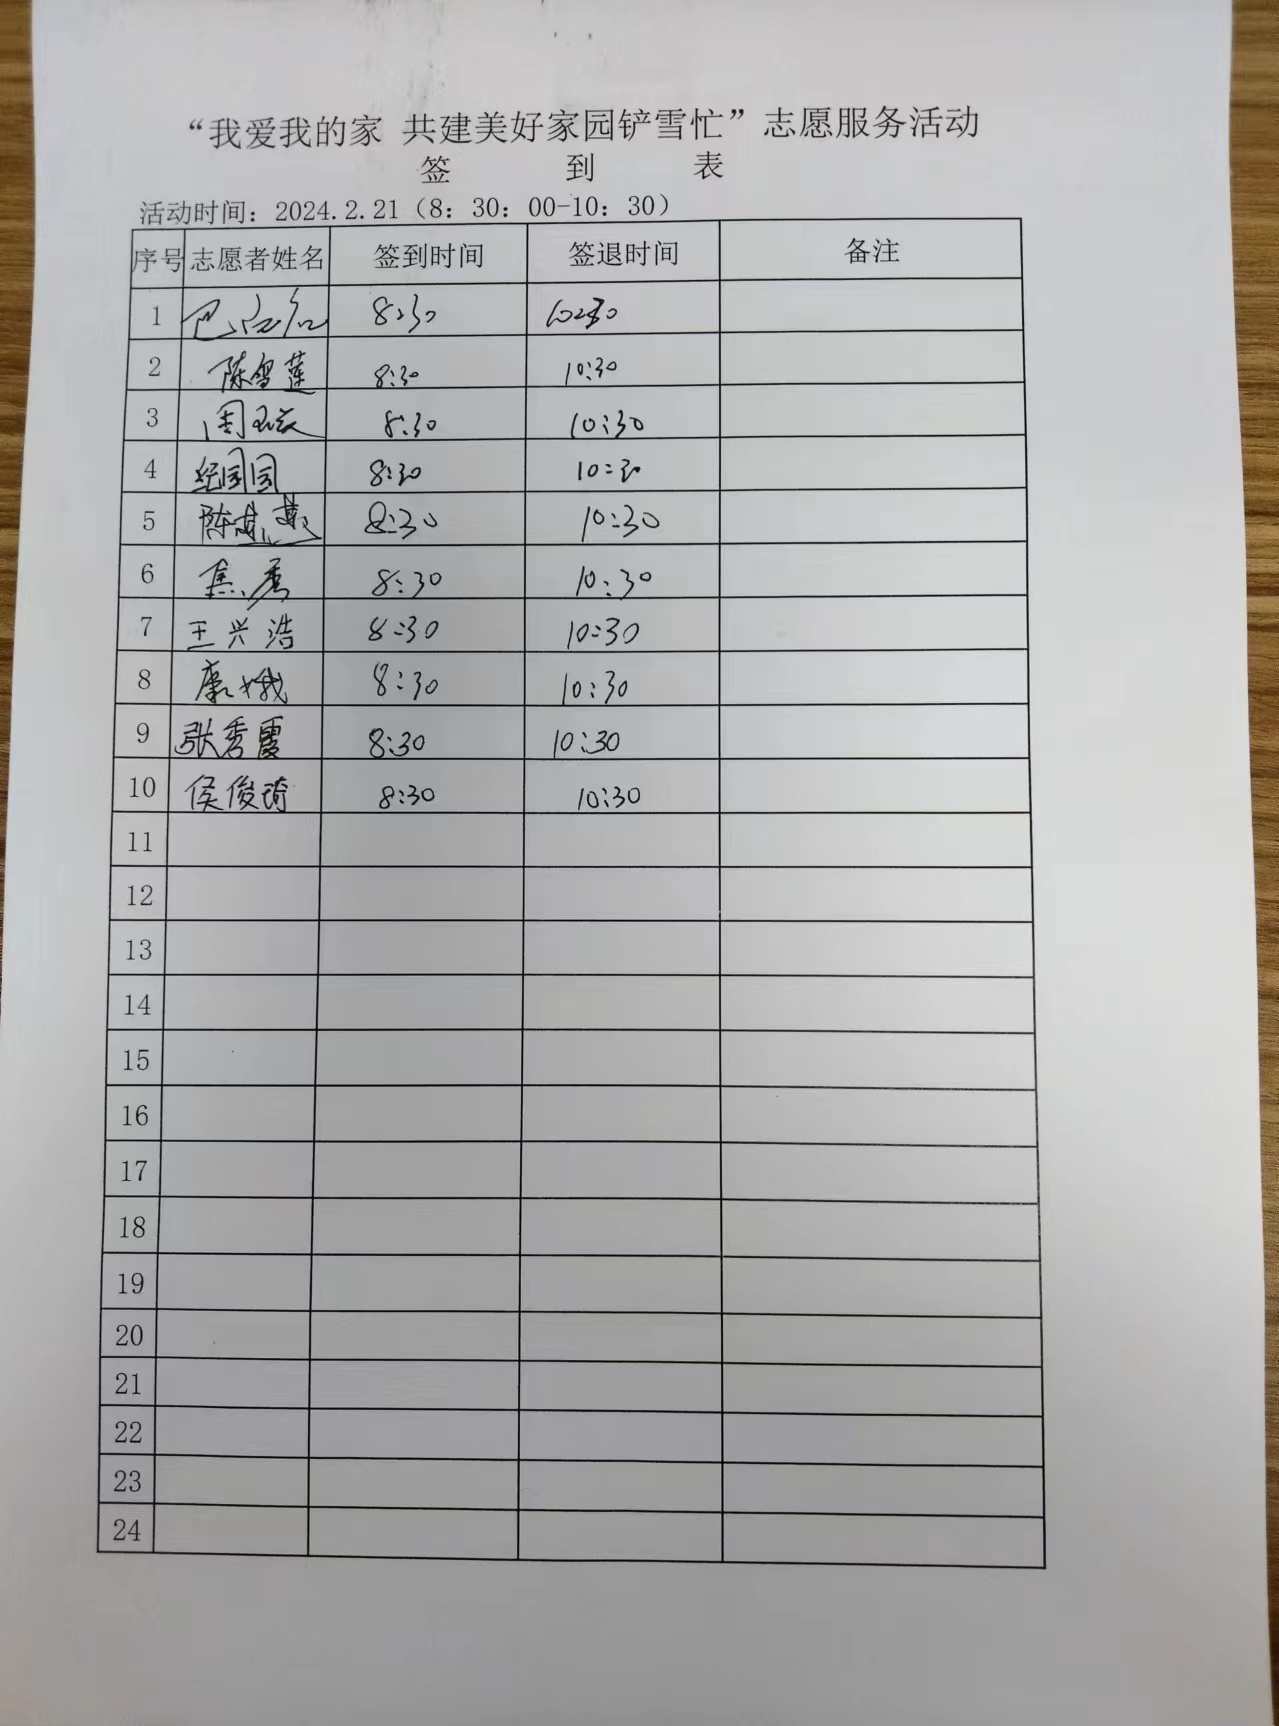 “我爱我的家 共建美好家园铲雪忙”志愿服务活动
签 到 表
活动时间：2024.2.21（8：30：00-10：30）
序号 志愿者姓名 签到时间 签退时间 备注
1 8:30 10:30
2 陈雪莲 8:30 10:30
3 周 8:30 10:30
4 纪园园 8:30 10:30
5 陈燕燕 8:30 10:30
6 焦秀 8:30 10:30
7 王兴浩 8:30 10:30
8 康娥 8:30 10:30
9 张秀霞 8:30 10:30
10 侯俊琦 8:30 10:30
11
12
13
14
15
16
17
18
19
20
21
22
23
24